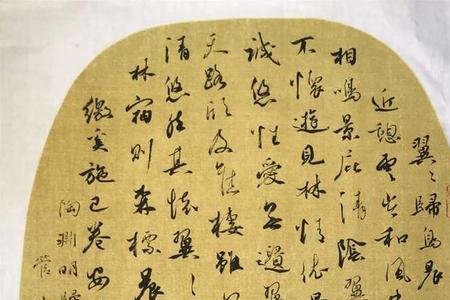 翼〻歸鳥晨
近憩雲岑和風
相鳴景庇清陰翼
不懷遊見林情依
誠悠性愛無遺翼
天路欣及舊棲雖
清悠然其懷翼〻
林宿則森標晨
繳奚施已卷安
陶淵明歸